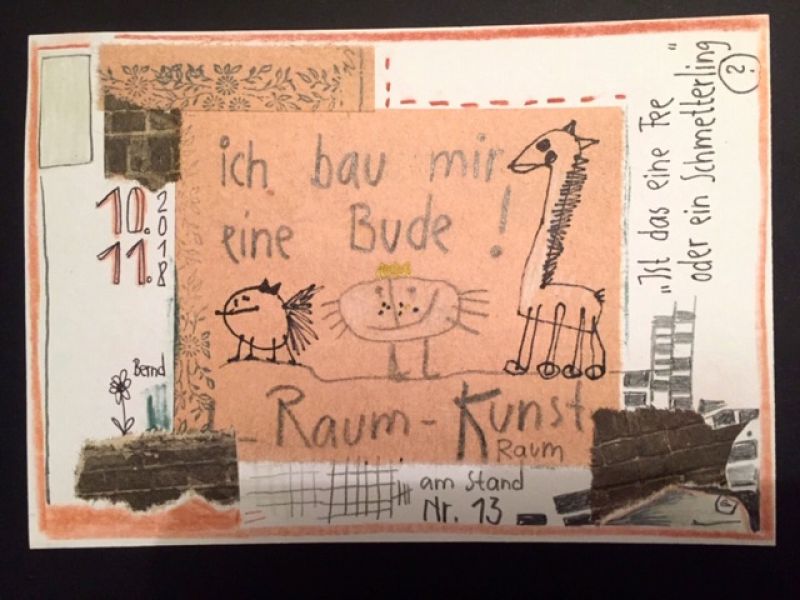 ich bau mir
eine Bude!
10.
11.
2018
"Ist das eine Fee
oder ein Schmetterling"
?
Bernd
_ Raum - Kunst
Raum
am Stand
Nr. 13